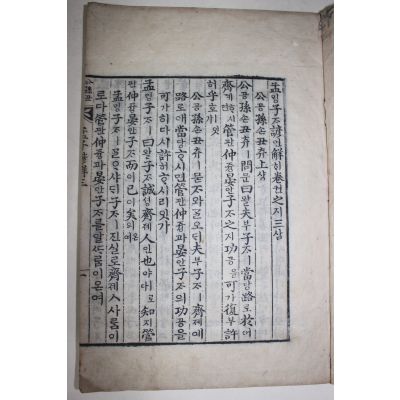 孟ᄆᆡᆼ子ᄌᆞ諺언解ᄒᆡ卷권之지三삼
公공孫손丑츄上샹
公공孫손丑츄ㅣ問문曰왈夫부子ᄌᆞㅣ當당路로於어
齊졔ᄒᆞ시면管관仲듕晏안子ᄌᆞ之지功공을可가復부許
허乎호ㅣ잇가
公공孫손丑츄ㅣ묻ᄌᆞ와ᄀᆞᆯ오ᄃᆡ夫부子ᄌᆞㅣ齊졔예
路로애當당ᄒᆞ시면管관仲듕과晏안子ᄌᆞ의功공을
可가히다시許허ᄒᆞ시리잇가
孟ᄆᆡᆼ子ᄌᆞㅣ曰왈子ᄌᆞ誠셩齊졔人인也야ㅣ로다知지管
관仲듕晏안子ᄌᆞ而이已이矣의온여
孟ᄆᆡᆼ子ᄌᆞㅣᄀᆞᆯᄋᆞ샤ᄃᆡ子ᄌᆞㅣ진실로齊졔ㅅ사ᄅᆞᆷ이
로다管관仲듕과晏안子ᄌᆞᄅᆞᆯ알ᄯᆞᄅᆞᆷ이온여
公孫丑